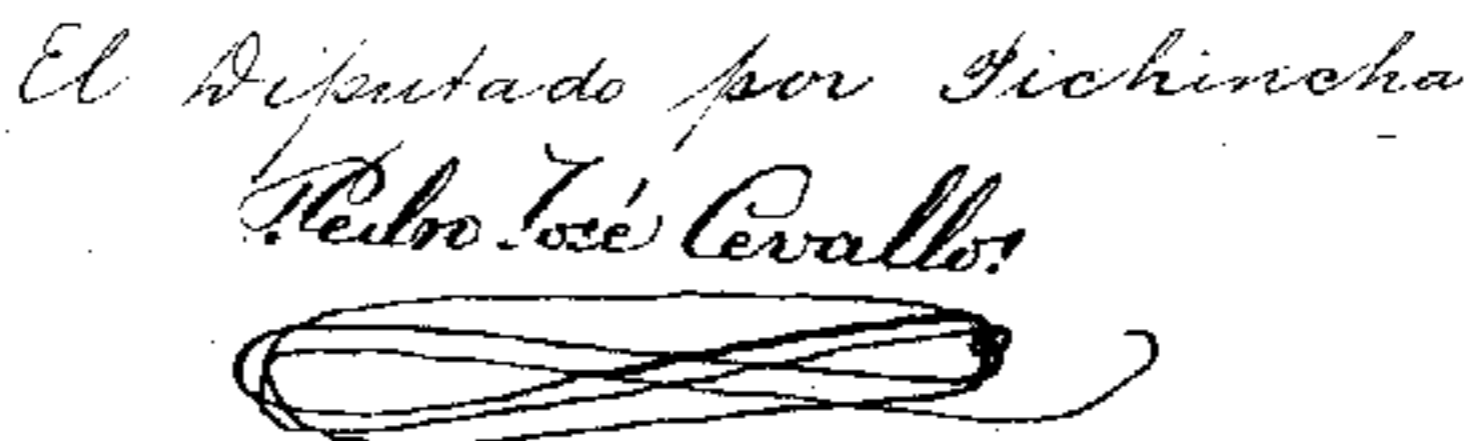 El Diputado por Pichincha
Pedro José Cevallos